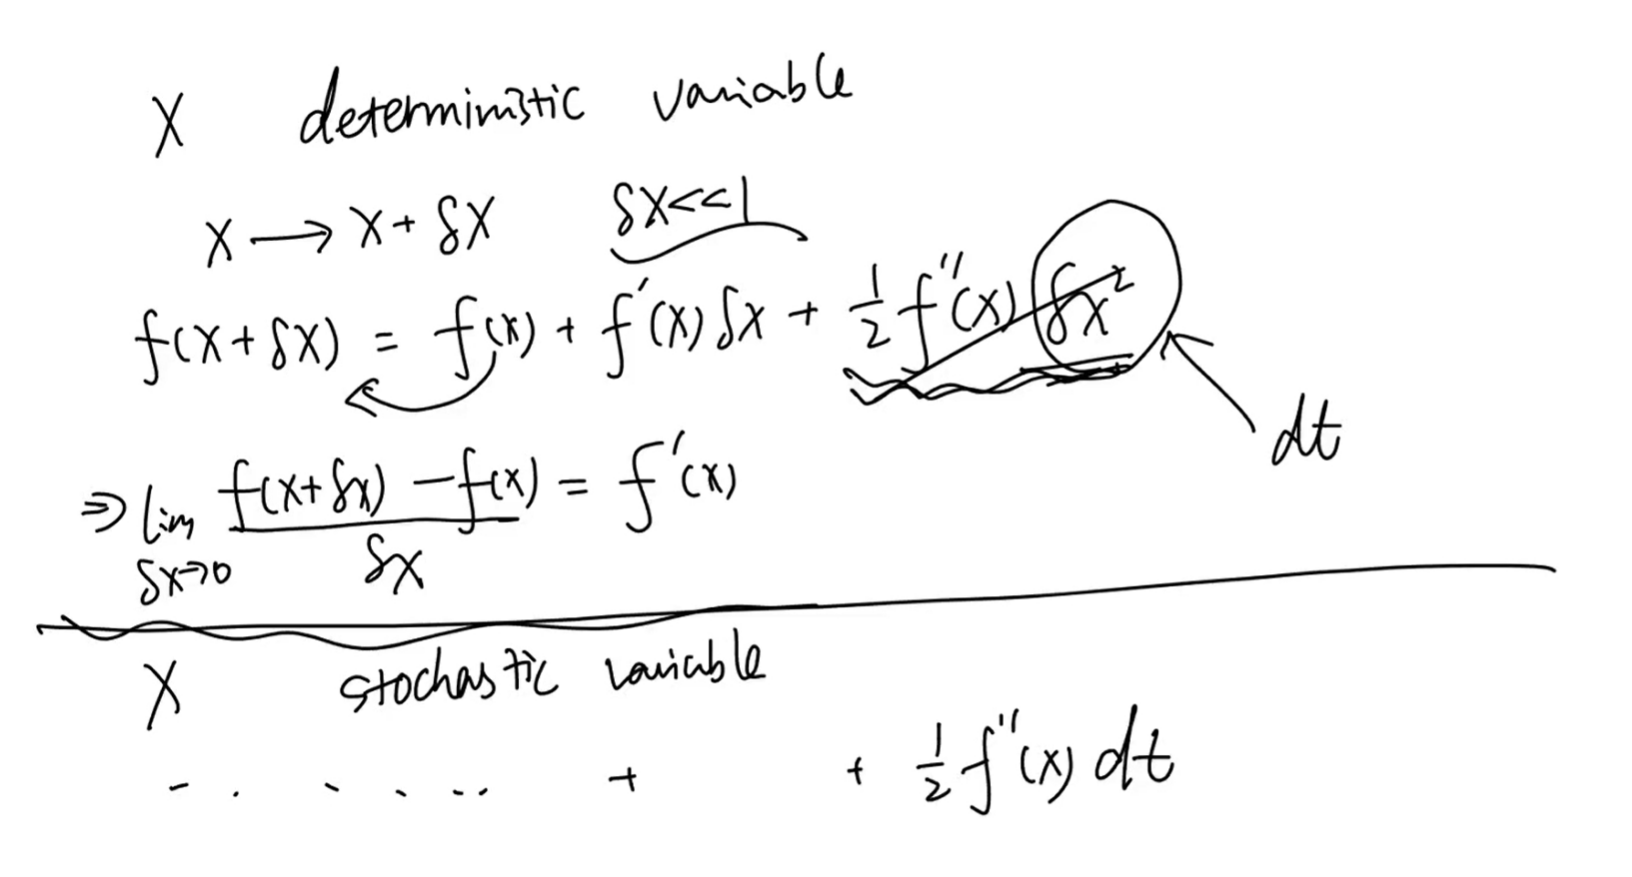 X deterministic variable
X → X + δX δX<<1
f(X+δX) = f(x) + f'(x) δx + 1/2 f''(x) δx²
dt
⇒ lim δx→0 (f(x+δx) - f(x)) / δx = f'(x)
X stochastic variable
- . . . . . . + + 1/2 f''(x) dt